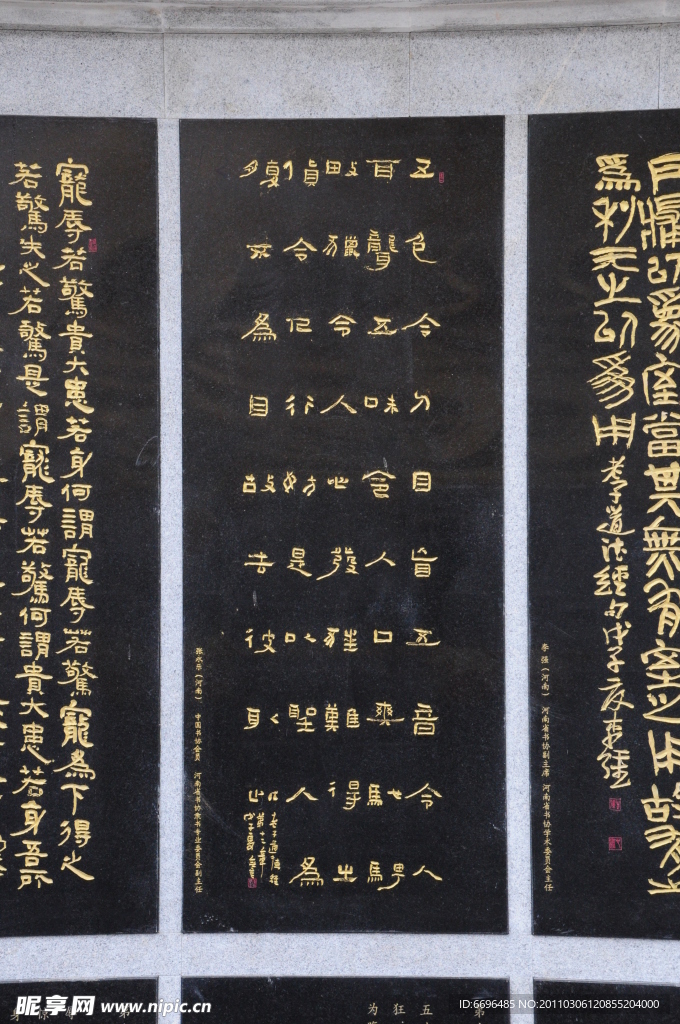 戶牖以為室當其無有室之用故有之
為利无之以為用 老子道法經句戊子夏李强
李强（河南） 河南省书协副主席 河南省书协学术委员会主任
五色令人目盲五音令人
耳聾五味令人口爽馳騁
畋獵令人心發狂難得之
貨令人行妨是以聖人為
腹不為目故去彼取此
老子道德經
第十二章
戊子夏
（河南） 中国书协会员 河南省书协隶书专业委员会副主任
寵辱若驚貴大患若身何謂寵辱若驚寵為下得之
若驚失之若驚是謂寵辱若驚何謂貴大患若身吾所
第
五
狂
为
第
身
昵享网 www.nipic.cn
ID:6696485 NO:20110306120855204000